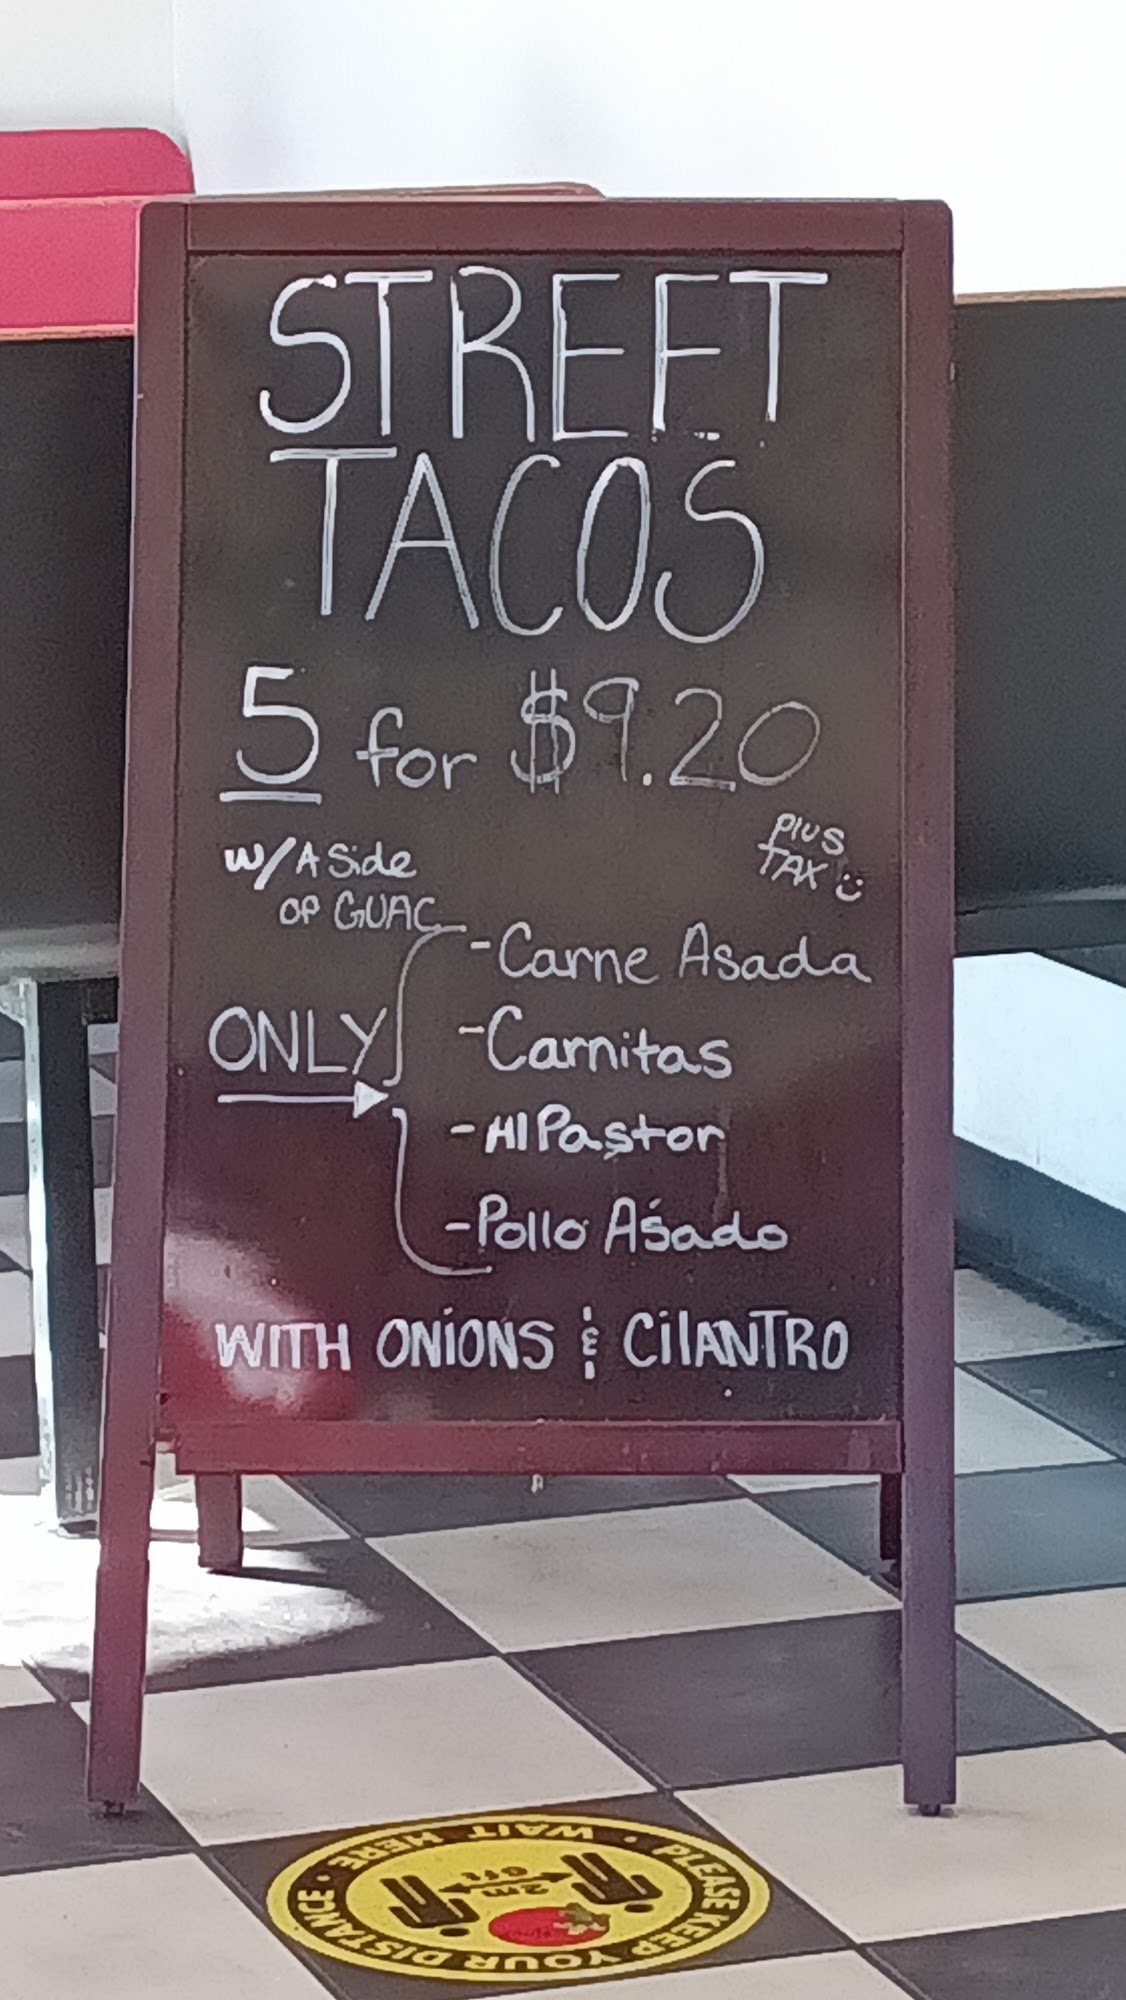 STREET
TACOS
5 for $9.20
PlUS
TAX :)
w/ A Side
OF GUAC
ONLY
- Carne Asada
- Carnitas
- Al Pastor
- Pollo Asado
WITH ONiONS & CilANTRO
PLEASE KEEP YOUR DISTANCE • WAIT HERE •
2m
6ft